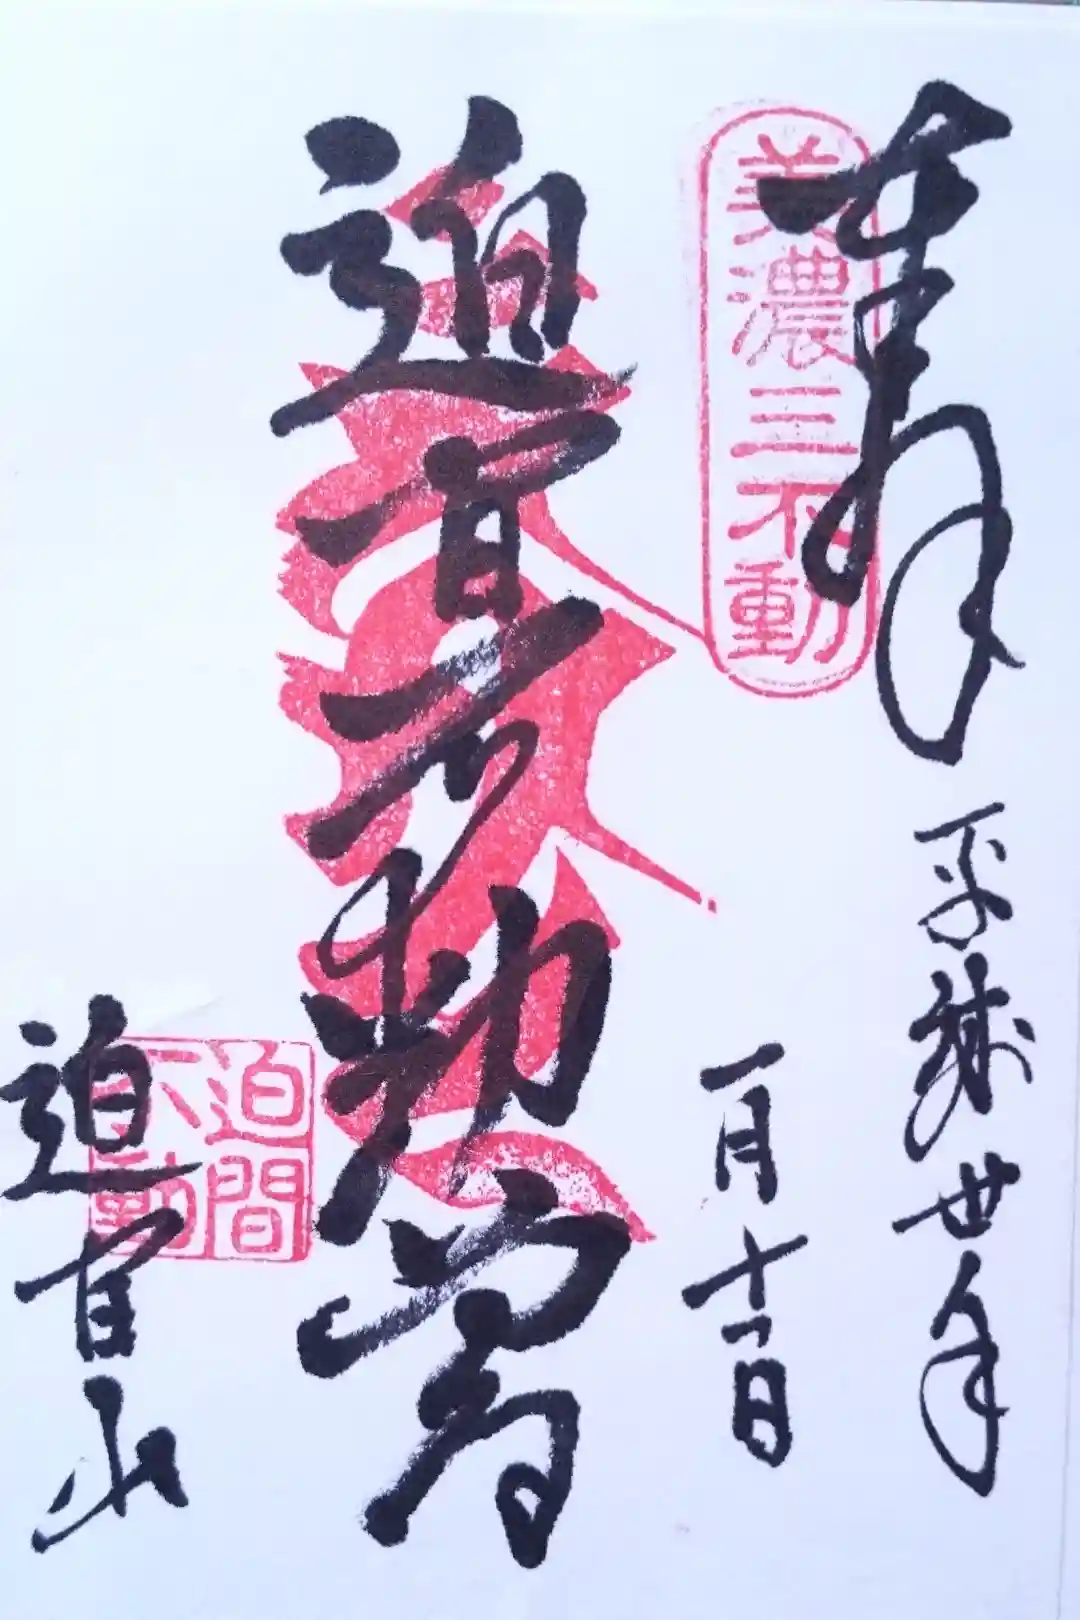 奉拝
平成廿年
一月十一日
美濃三不動
迫間不動尊
迫間
不動
迫間山